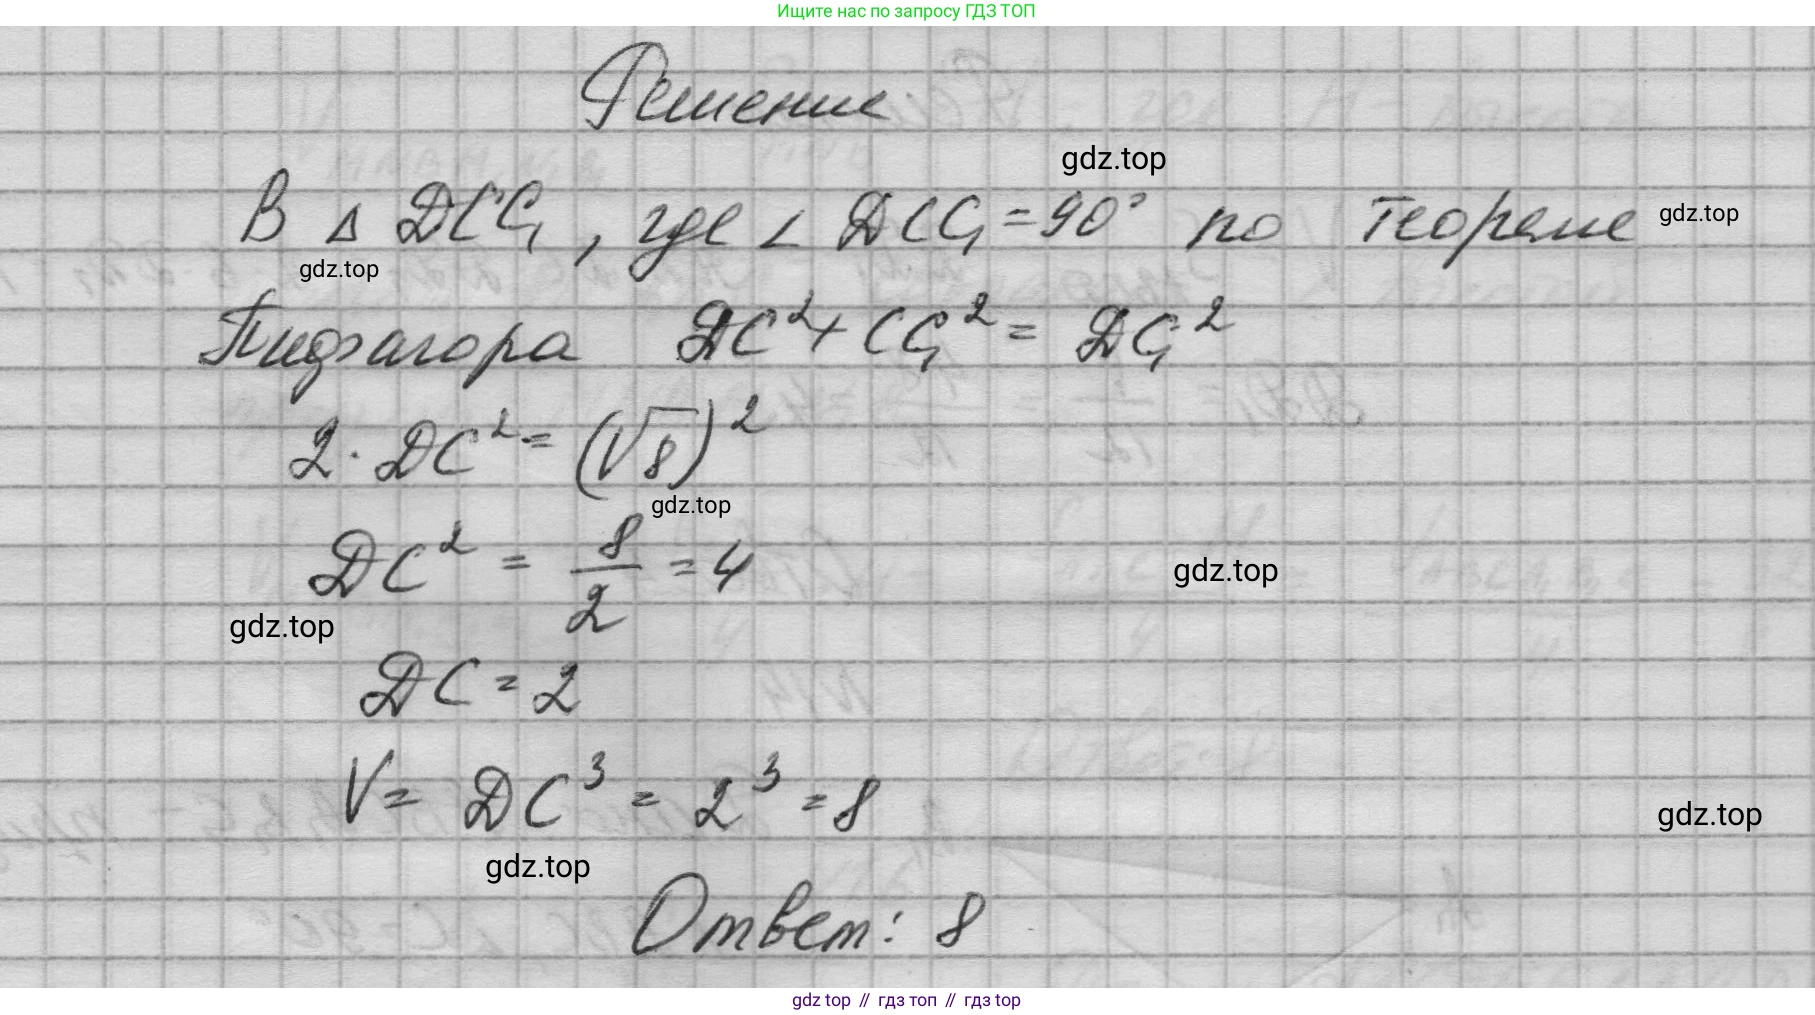 Ищите нас по запросу ГДЗ ТОП
Решение
gdz.top
В Δ DCC₁, где ∠ DCC₁ = 90° по теореме
gdz.top
gdz.top
Пифагора DC² + CC₁² = DC₁²
2 · DC² = (√8)²
gdz.top
DC² = 8/2 = 4
gdz.top
gdz.top
DC = 2
V = DC³ = 2³ = 8
gdz.top
gdz.top
Ответ: 8
gdz top // гдз топ // гдз top